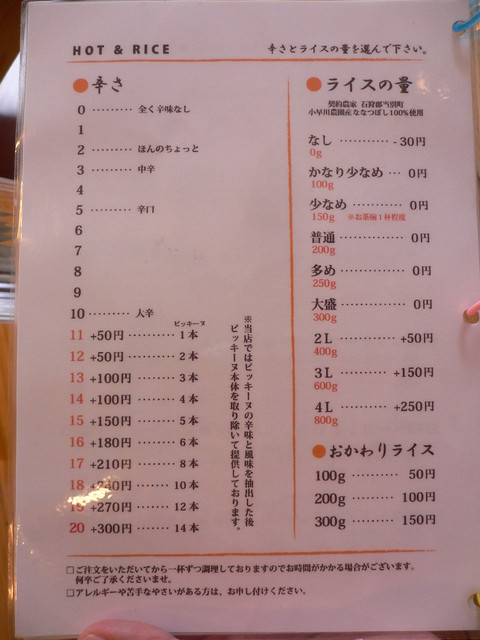 HOT & RICE
辛さとライスの量を選んで下さい。
●辛さ
0 ……… 全く辛味なし
1
2 ……… ほんのちょっと
3 ……… 中辛
4
5 ……… 辛口
6
7
8
9
10 ……… 大辛
ピッキーヌ
11 +50円 ……… 1本
12 +50円 ……… 2本
13 +100円 ……… 3本
14 +100円 ……… 4本
15 +150円 ……… 5本
16 +180円 ……… 6本
17 +210円 ……… 8本
18 +240円 ……… 10本
19 +270円 ……… 12本
20 +300円 ……… 14本
※当店ではピッキーヌの辛味と風味を抽出した後
ピッキーヌ本体を取り除いて提供しております。
●ライスの量
契約農家 石狩郡当別町
小早川農園産ななつぼし100%使用
なし ………… -30円
0g
かなり少なめ … 0円
100g
少なめ ………… 0円
150g ※お茶碗1杯程度
普通 ………… 0円
200g
多め ………… 0円
250g
大盛 ………… 0円
300g
2L ………… +50円
400g
3L ………… +150円
600g
4L ………… +250円
800g
●おかわりライス
100g ……… 50円
200g ……… 100円
300g ……… 150円
□ご注文をいただいてから一杯ずつ調理しておりますのでお時間がかかる場合がございます。
何卒ご了承くださいませ。
□アレルギーや苦手なやさいがある方は、お申し付けください。